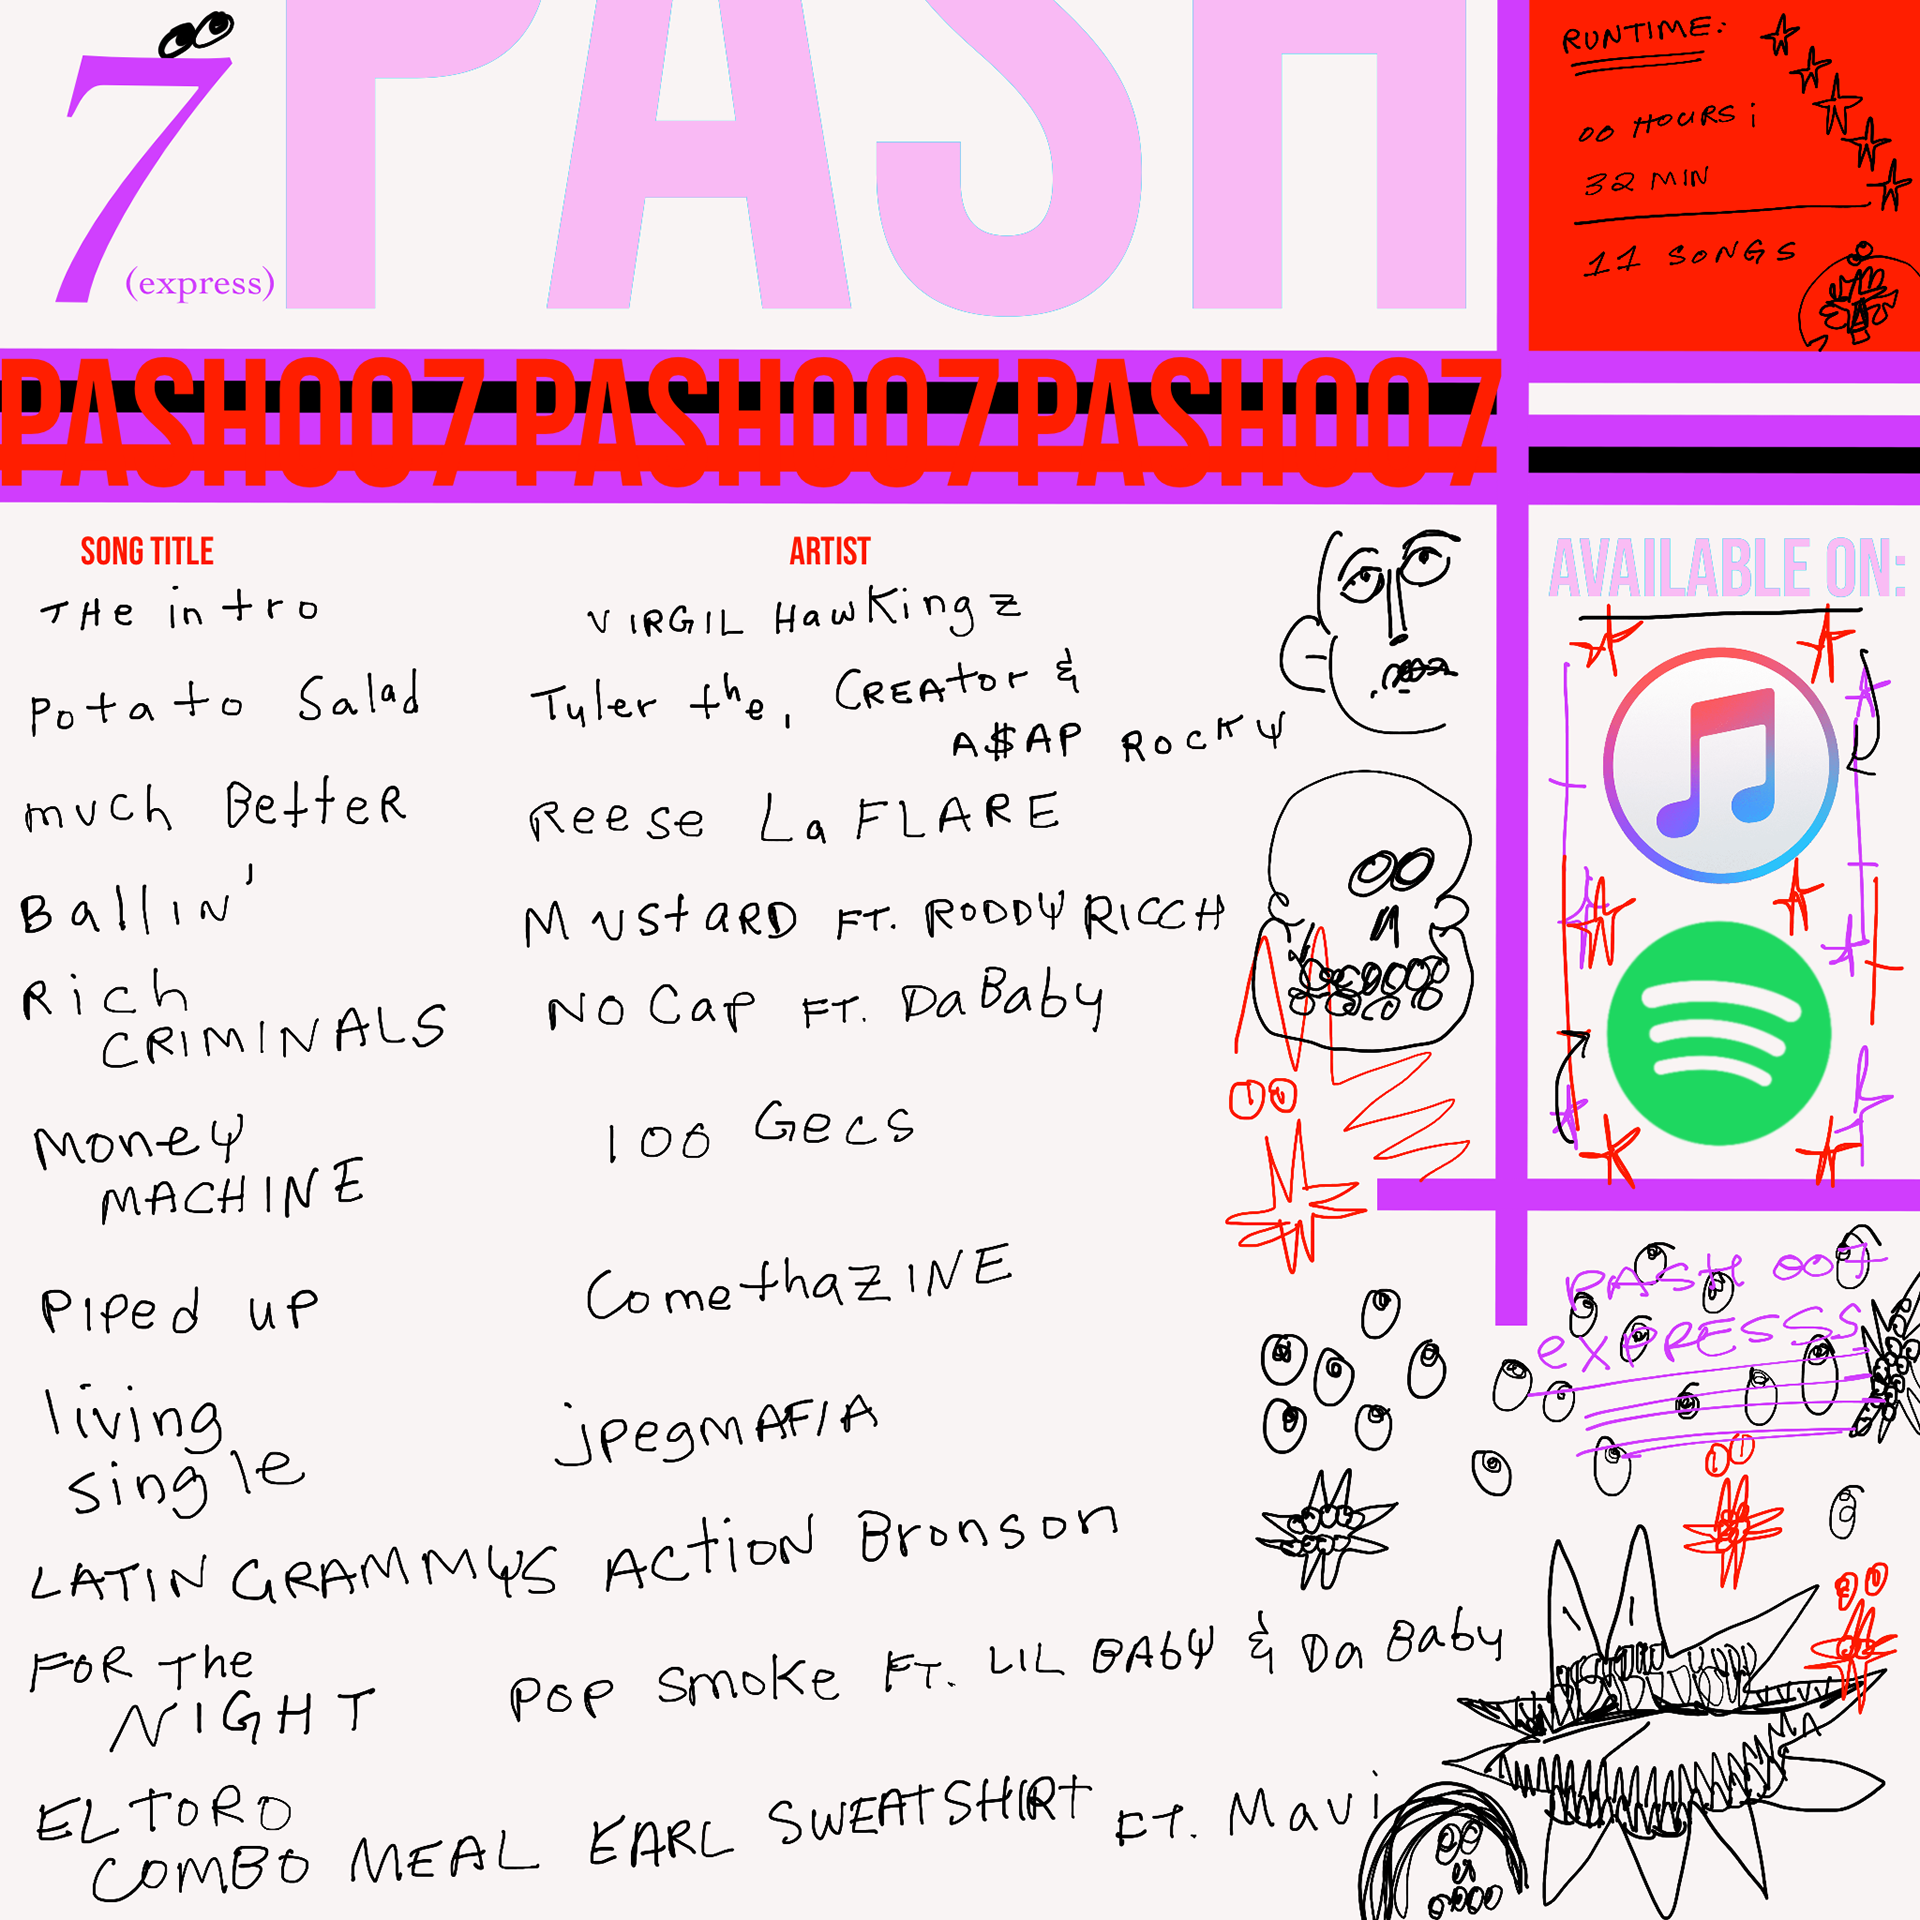 7
(express)
PASH
RUNTIME:
00 HOURS ;
32 MIN
11 SONGS
PASH007 PASH007 PASH007
SONG TITLE ARTIST
THe intro VIRGIL HawKingz
Potato Salad Tyler the, CREAtor &
A$AP ROCKY
much BetteR Reese La FLARE
BallIN' MUStARD FT. RODDY RICCH
Rich NO Cap FT. DaBaby
CRIMINALS
Money 100 Gecs
MACHINE
PIPed up ComethaZINE
living jpegmAFIA
single
LATIN GRAMMYS ACtION Bronson
FOR The POP SmoKe FT. LIL BAbY & Da Baby
NIGHT
EL TORO
COMBO MEAL EARL SWEATSHIRT FT. Mavi
AVAILABLE ON:
PASH 007
eXPRESSS